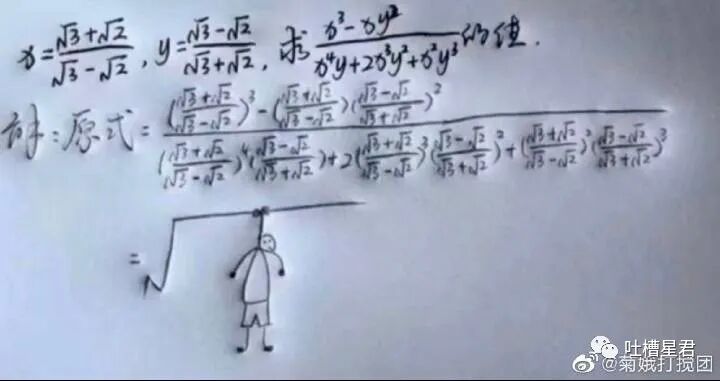 x=(√3+√2)/(√3-√2), y=(√3-√2)/(√3+√2), 求 (x³-xy²)/(x⁴y+2x³y²+x²y³) 的值.
解:原式=(((√3+√2)/(√3-√2))³-((√3+√2)/(√3-√2))((√3-√2)/(√3+√2))²)/(((√3+√2)/(√3-√2))⁴((√3-√2)/(√3+√2))+2((√3+√2)/(√3-√2))³((√3-√2)/(√3+√2))²+((√3+√2)/(√3-√2))²((√3-√2)/(√3+√2))³)
=√
吐槽星君
@菊娥打搅团